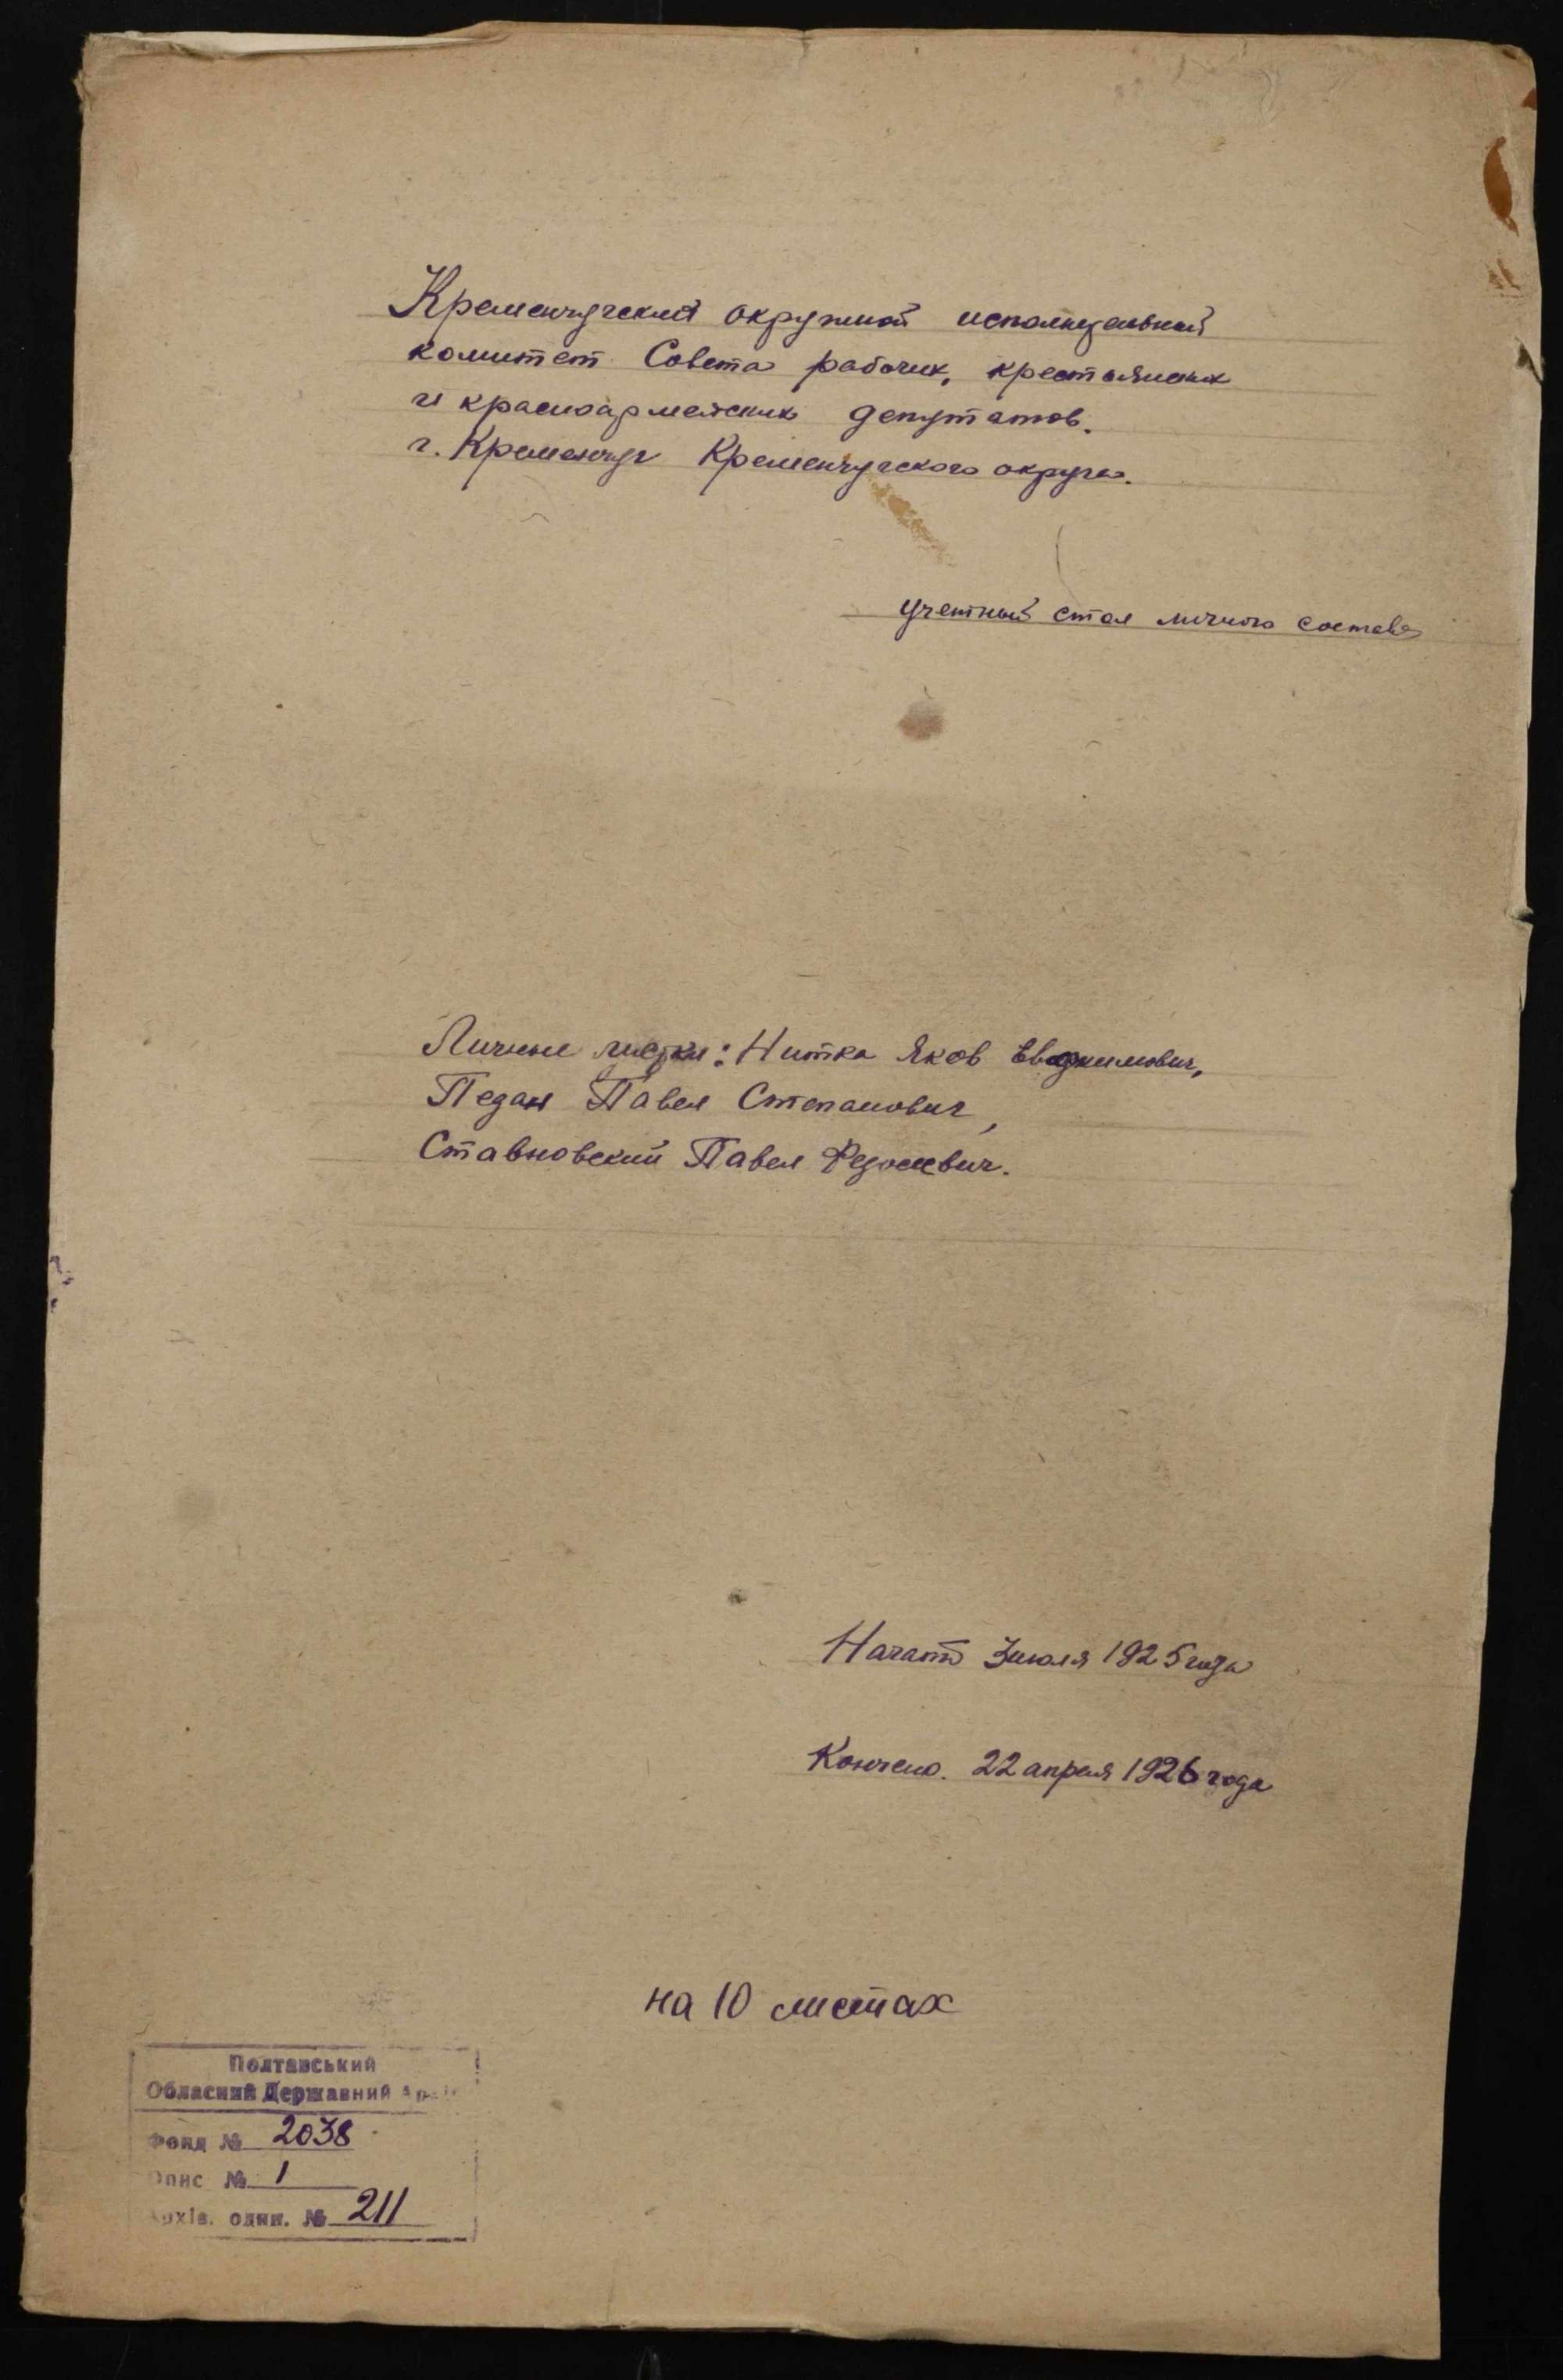 Кременчугский окружной исполнительный
комитет Совета рабочих, крестьянских
и красноармейских депутатов.
г. Кременчуг Кременчугского округа.
учетный стол личного состава
Личные листки: Нитка Яков Евдокимович,
Педан Павел Степанович,
Ставновский Павел Федосеевич.
Начато 3 июля 1925 года
Кончено. 22 апреля 1926 года
на 10 листах
Полтавський
Обласний Державний Архів
Фонд № 2038
Опис № 1
Архів. один. № 211